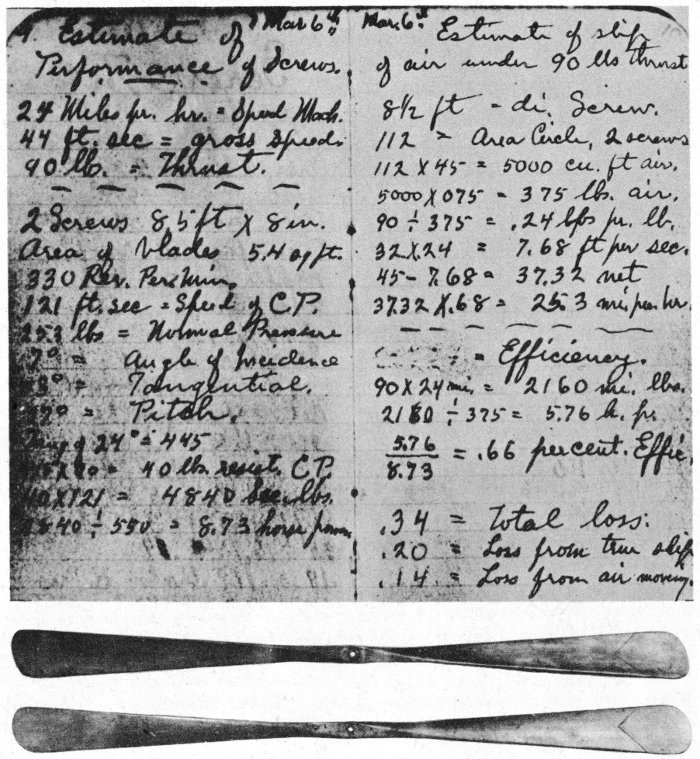 Estimate of Mar 6th
Performance of Screws.
24 Miles pr. hr. = Speed Mach.
44 ft. sec = gross Speed.
90 lb. = Thrust.
2 Screws 8.5 ft X 8 in.
Area of blades 5.4 sq ft.
330 Rev. Per. Min.
121 ft. sec = Speed of C.P.
253 lbs = Normal Pressure
= Angle of Incedence
= Tangential.
= Pitch.
24° = 445
= 40 lb. resist. C.P.
40X121 = 4840 Sec. lbs.
4840 ÷ 550 = 8.73 horse power
Mar. 6th Estimate of slip
of air under 90 lbs thrust
8 1/2 ft - di. Screw.
112 = Area Circle, 2 screws
112 X 45 = 5000 cu. ft air.
5000 X 075 = 375 lbs. air.
90 ÷ 375 = .24 lbs pr. lb.
32X.24 = 7.68 ft per sec.
45 - 7.68 = 37.32 net
37.32 X .68 = 25.3 mi. per hr
= Efficiency.
90 X 24 mi. = 2160 mi. lbs.
2160 ÷ 375 = 5.76 h. pr.
5.76
8.73 = .66 percent. Effic.
.34 = Total loss.
.20 = Loss from true slip
.14 = Loss from air moving.